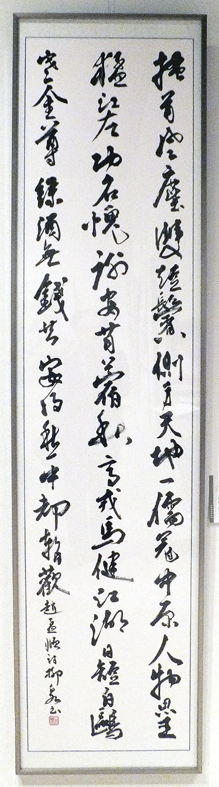 搔首風塵雙短鬢側身天地一儒冠中原人物思王
猛江左功名愧謝安苜蓿秋高戎馬健江湖日短白鷗
寒金尊綠酒無錢共安得愁中却暫歡 趙孟頫詩柳書